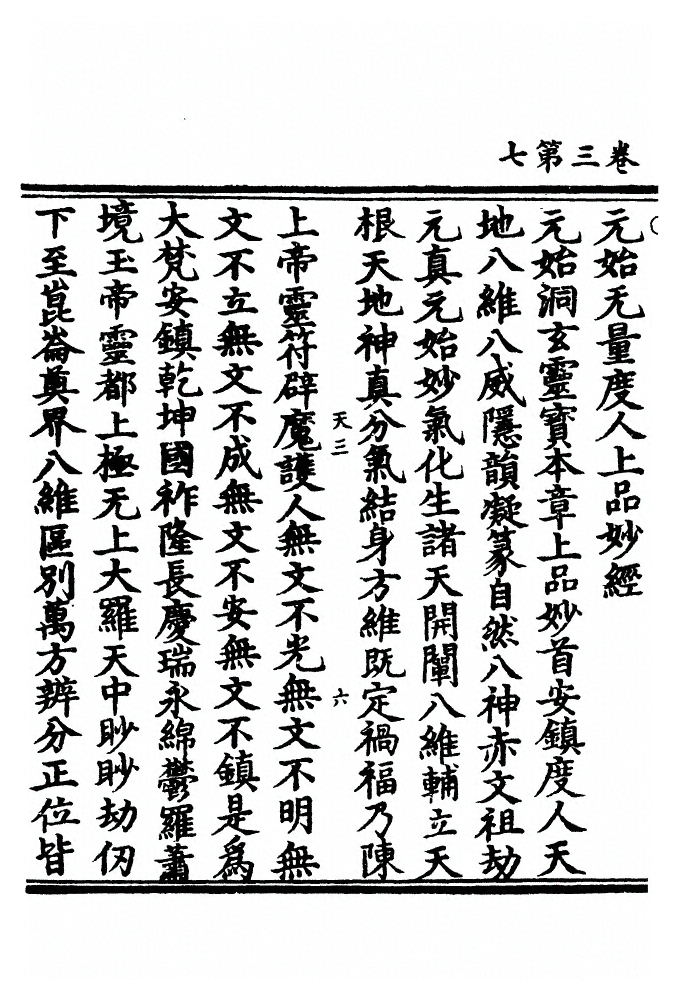 七第三卷
元始无量度人上品妙經
元始洞玄靈寶本章上品妙首安鎮度人天
地八維八威隱韻凝篆自然八神赤文祖劫
元真元始妙氣化生諸天開闡八維輔立天
根天地神真分氣結身方維既定禍福乃陳
天三
六
上帝靈符辟魔護人無文不光無文不明無
文不立無文不成無文不安無文不鎮是為
大梵安鎮乾坤國祚隆長慶瑞永綿鬱羅蕭
境玉帝靈都上極无上大羅天中眇眇劫仞
下至崑崙奠界八維區別萬方辨分正位皆